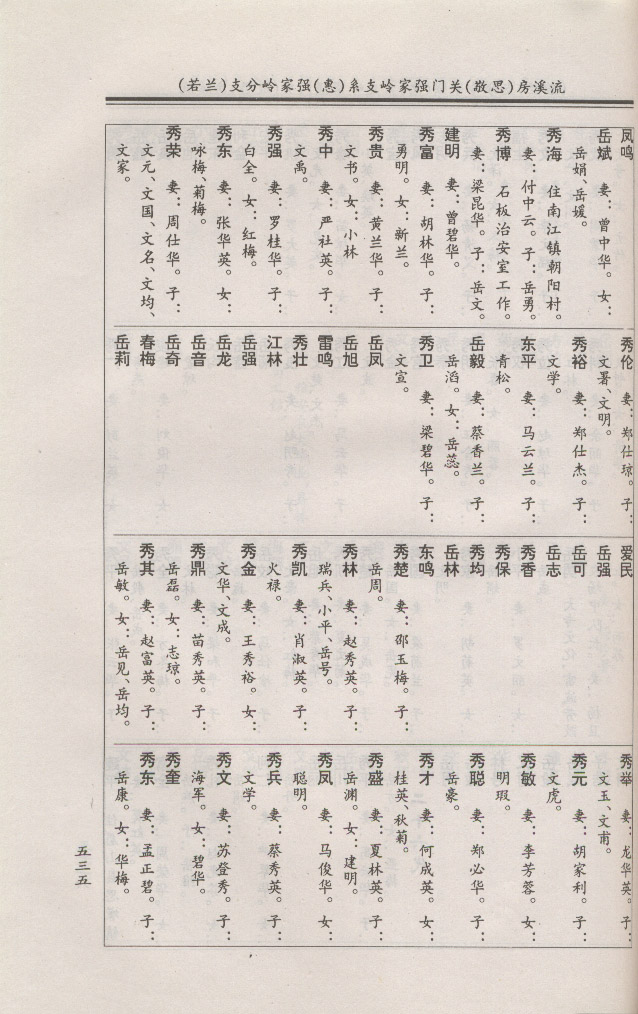 流溪房(思敬)关门强家岭支系(惠)强家岭分支(兰若)
凤鸣
岳斌 妻：曾中华。女：
岳娟、岳媛。
秀海 住南江镇朝阳村。
妻：付中云。子：岳勇。
秀博 石板治安室工作。
妻：梁昆华。子：岳文。
建明 妻：曾碧华。
秀富 妻：胡林华。子：
勇明。女：新兰。
秀贵 妻：黄兰华。子：
文书。女：小林
秀中 妻：严社英。子：
文禹。
秀强 妻：罗桂华。子：
白全。女：红梅。
秀东 妻：张华英。女：
咏梅、菊梅。
秀荣 妻：周仕华。子：
文元、文国、文名、文均、
文家。
秀伦 妻：郑仕琼。子：
文署、文明。
秀裕 妻：郑仕杰。子：
文学。
东平 妻：马云兰。子：
青松。
岳毅 妻：蔡香兰。子：
岳滔。女：岳蕊。
秀卫 妻：梁碧华。子：
文宣。
岳凤
岳旭
雷鸣
秀壮
江林
岳强
岳龙
岳音
岳奇
春梅
岳莉
爱民
岳强
岳可
岳志
秀香
秀保
秀均
岳林
东鸣
秀楚 妻：邵玉梅。子：
岳周。
秀林 妻：赵秀英。子：
瑞兵、小平、岳号。
秀凯 妻：肖淑英。子：
火禄。
秀金 妻：王秀裕。女：
文华、文成。
秀鼎 妻：苗秀英。子：
岳磊。女：志琼。
秀其 妻：赵富英。子：
岳敏。女：岳见、岳均。
秀举 妻：龙华英。子：
文玉、文甫。
秀元 妻：胡家利。子：
文虎。
秀敏 妻：李芳蓉。女：
明瑕。
秀聪 妻：郑必华。子：
岳豪。
秀才 妻：何成英。女：
桂英、秋菊。
秀盛 妻：夏林英。子：
岳渊。女：建明。
秀凤 妻：马俊华。女：
聪明。
秀兵 妻：蔡秀英。子：
文学。
秀文 妻：苏登秀。子：
海军。女：碧华。
秀奎
秀东 妻：孟正碧。子：
岳康。女：华梅。
五三五